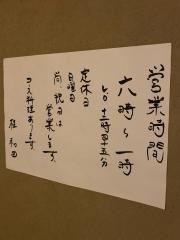 営業時間
六時〜一時
L.O. 十二時四十五分
定休日
日曜日
尚、祝日は
営業します。
コース料理あります。